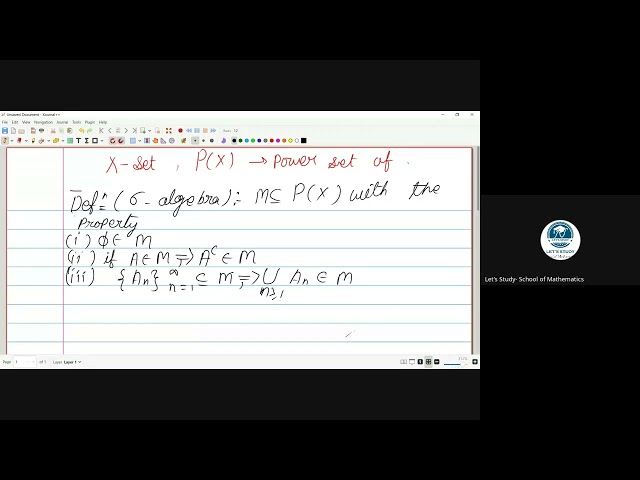 Unsaved Document - Xournal++
File Edit View Navigation Journal Tools Plugin Help
X-set , P(X) → Power set of .
Defⁿ (σ-algebra):- M ⊆ P(X) with the
Property
(i) ϕ ∈ M
(ii) if A ∈ M ⇒ Aᶜ ∈ M
(iii) {An}∞n=1 ⊆ M, ⇒ ⋃n≥1 An ∈ M
Page 1 of 1 Layer Layer 1
LET'S STUDY
Let's Study- School of Mathematics